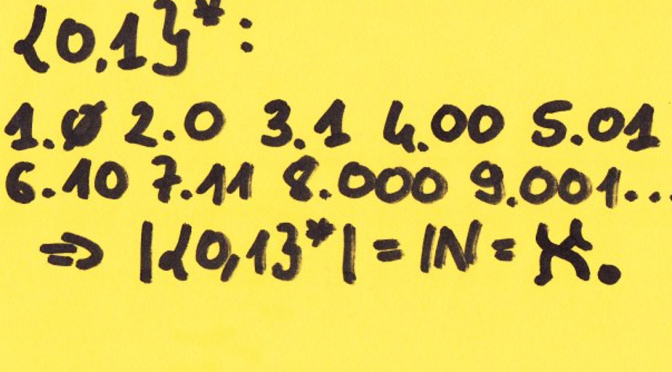 {0,1}*:
1.ø 2.0 3.1 4.00 5.01
6.10 7.11 8.000 9.001..
⇒ |{0,1}*| = |N = ℵ.